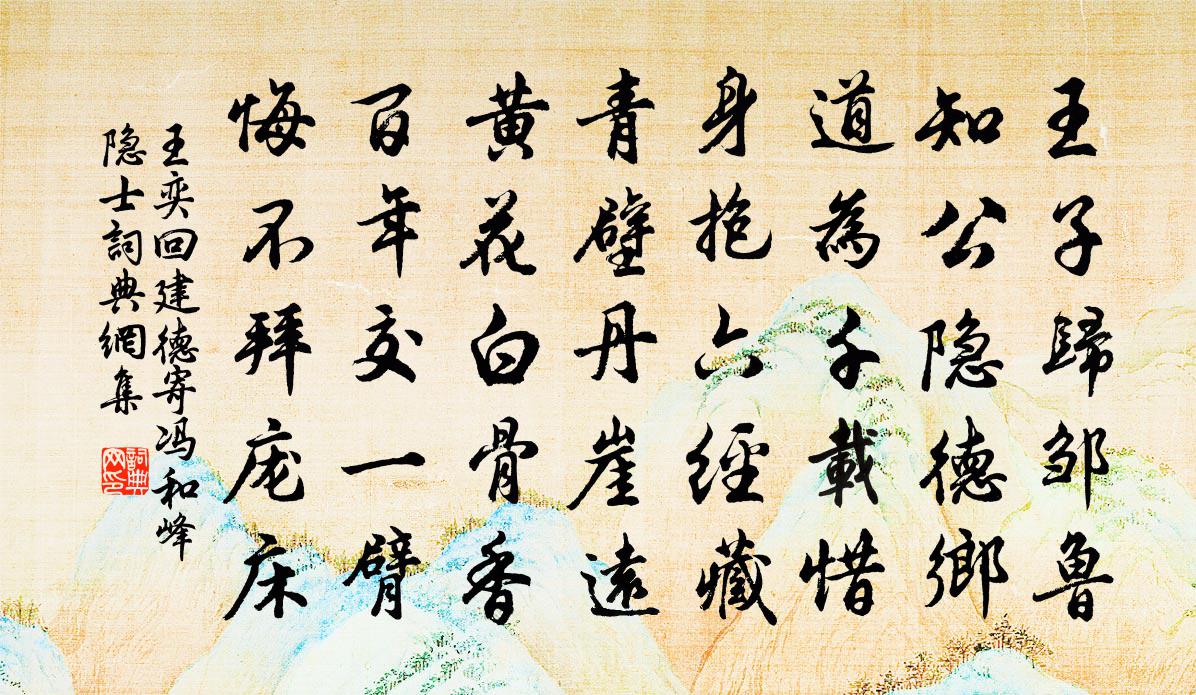 王子歸邹魯
知公隐德鄉
道為千載惜
身抱六經藏
青壁丹崖遠
黄花白骨香
百年交一臂
悔不拜庞床
王奕回建德寄冯和峰
隐士詞典網集
詞典网印